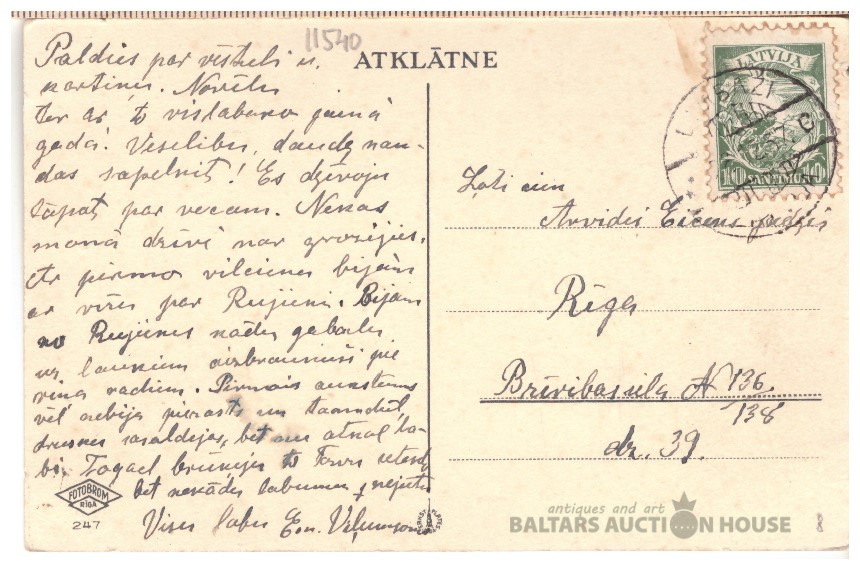 11540
ATKLĀTNE
Paldies par vēstuli un
kartiņu. Novēlu
Tev ar to vislabāko jaunā
gadā! Veselību, daudz nau-
das sapelnīt! Es dzīvoju
tāpat par vecam. Nekas
manā dzīvē nav grozījies.
Ar pirmo vilcienu bijām
ar vīru par Rujieni. Bijām
no Rujienes kādu gabalu
uz laukiem aizbraukuši pie
viņa radiem. Pirmais aukstums
vēl nebija pierasts un tamdēļ
drusku sasaldējos, bet nu atkal la-
bi. Tagad
bet nekādu labumu nejūtu
Visu labu E. un
LATVIJA
10 SANTIMU 10
Ļoti cien
Arvidis kundzis
Rīga
Brīvības iela N 136/138
dz. 39.
FOTOBROM
RĪGA
247
antiques and art
BALTARS AUCTION HOUSE
8